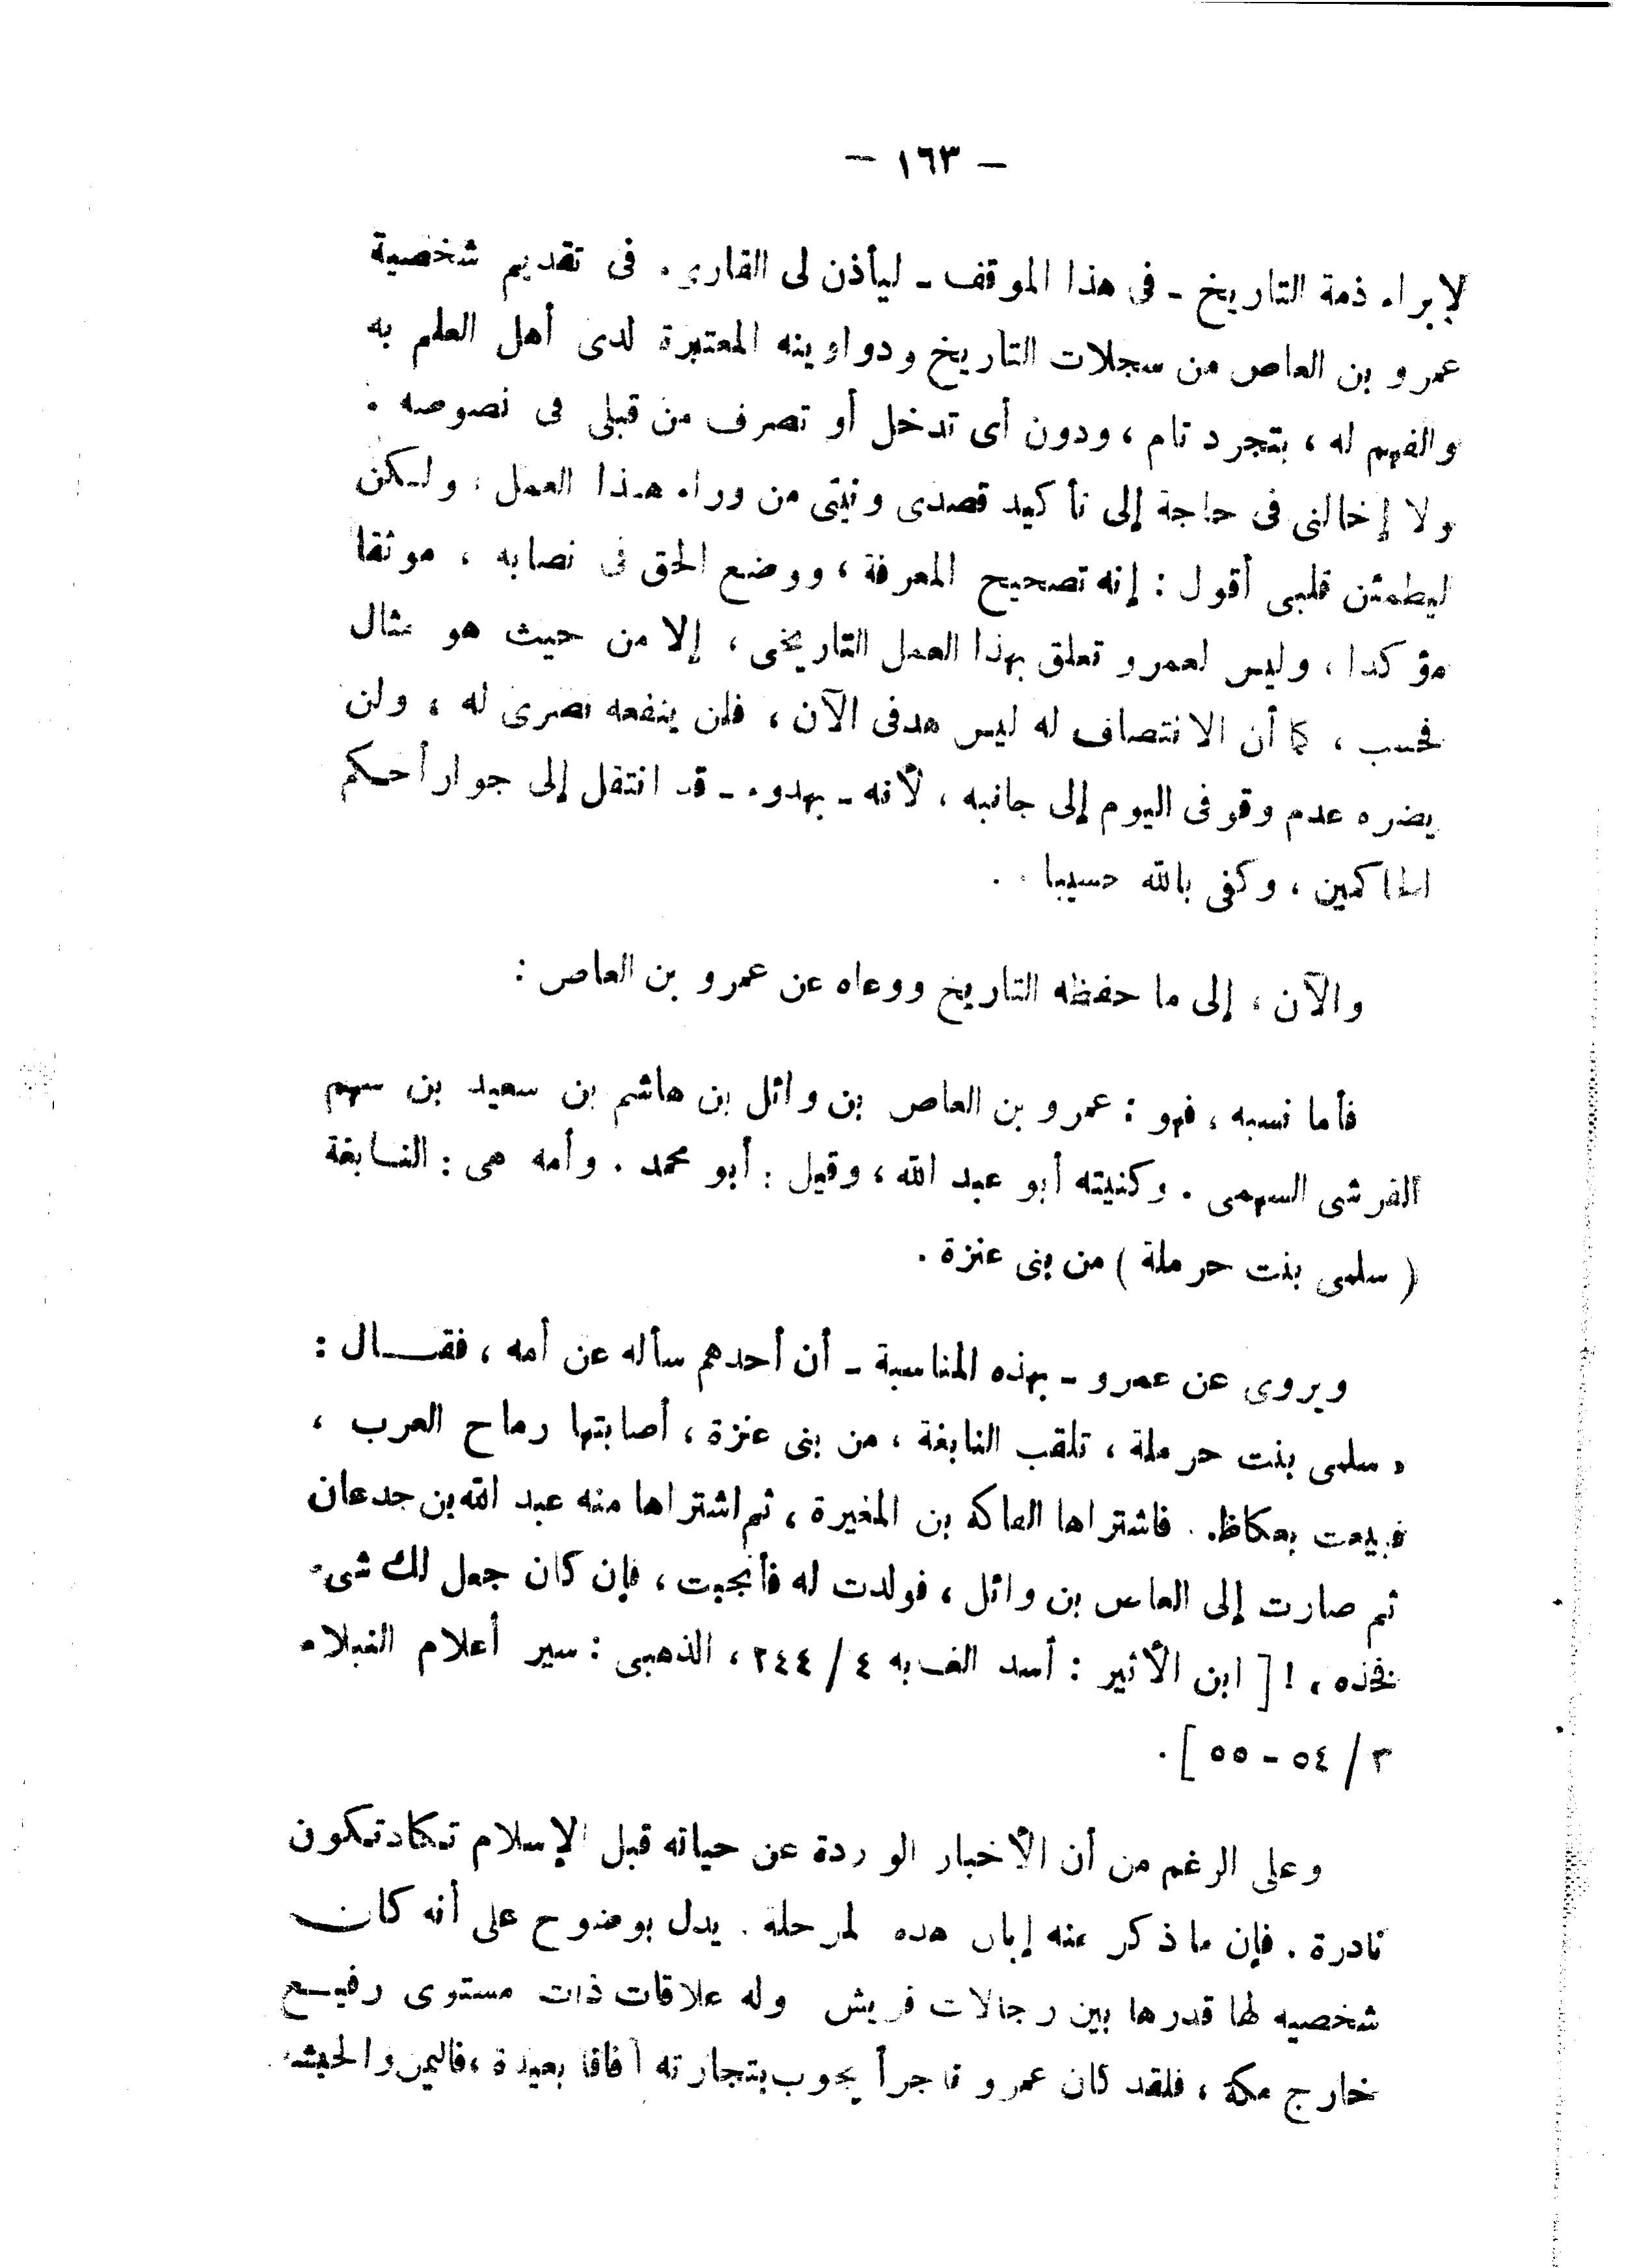 — ١٦٣ —
لإبراء ذمة التاريخ ـ فى هذا الموقف ـ ليأذن لى القارىء فى تقديم شخصية
عمرو بن العاص من سجلات التاريخ ودواوينه المعتبرة لدى أهل العلم به
والفهم له ، بتجرد تام ، ودون أى تدخل أو تصرف من قبلى فى نصوصه .
ولا إخالنى فى حاجة إلى تأكيد قصدى ونيتى من وراء هذا العمل ، ولكن
ليطمئن قلبى أقول : إنه تصحيح المعرفة ، ووضع الحق فى نصابه ، موثقا
مؤكدا ، وليس لعمرو تعلق بهذا العمل التاريخى ، إلا من حيث هو مثال
فحسب ، كما أن الانتصاف له ليس هدفى الآن ، فلن ينفعه نصرى له ، ولن
يضره عدم وقوفى اليوم إلى جانبه ، لأنه ـ بهدوء ـ قد انتقل إلى جوار أحكم
الحاكمين ، وكفى بالله حسيبا . .
والآن ، إلى ما حفظه التاريخ ووعاه عن عمرو بن العاص :
فأما نسبه ، فهو : عمرو بن العاص بن وائل بن هاشم بن سعيد بن سهم
القرشى السهمى . وكنيته أبو عبد الله ، وقيل : أبو محمد . وأمه هى : النابغة
( سلمى بنت حرملة ) من بنى عنزة .
ويروى عن عمرو ـ بهذه المناسبة ـ أن أحدهم سأله عن أمه ، فقال :
« سلمى بنت حرملة ، تلقب النابغة ، من بنى عنزة ، أصابتها رماح العرب ،
فبيعت بعكاظ . فاشتراها الفاكه بن المغيرة ، ثم اشتراها منه عبد الله بن جدعان
ثم صارت إلى العاص بن وائل ، فولدت له فأنجبت ، فإن كان جعل لك شىء
فخذه » ! [ ابن الأثير : أسد الغابه ٤ / ٢٤٤ ، الذهبى : سير أعلام النبلاء
٣ / ٥٤ - ٥٥ ] .
وعلى الرغم من أن الأخبار الوردة عن حياته قبل الإسلام تكاد تكون
نادرة . فإن ما ذكر عنه إبان هده لمرحلة . يدل بوضوح على أنه كان
شخصيه لها قدرها بين رجالات قريش وله علاقات ذات مستوى رفيع
خارج مكة ، فلقد كان عمرو تاجرأ يجوب بتجارته آفاقا بعيدة ، فاليمن والحبشة